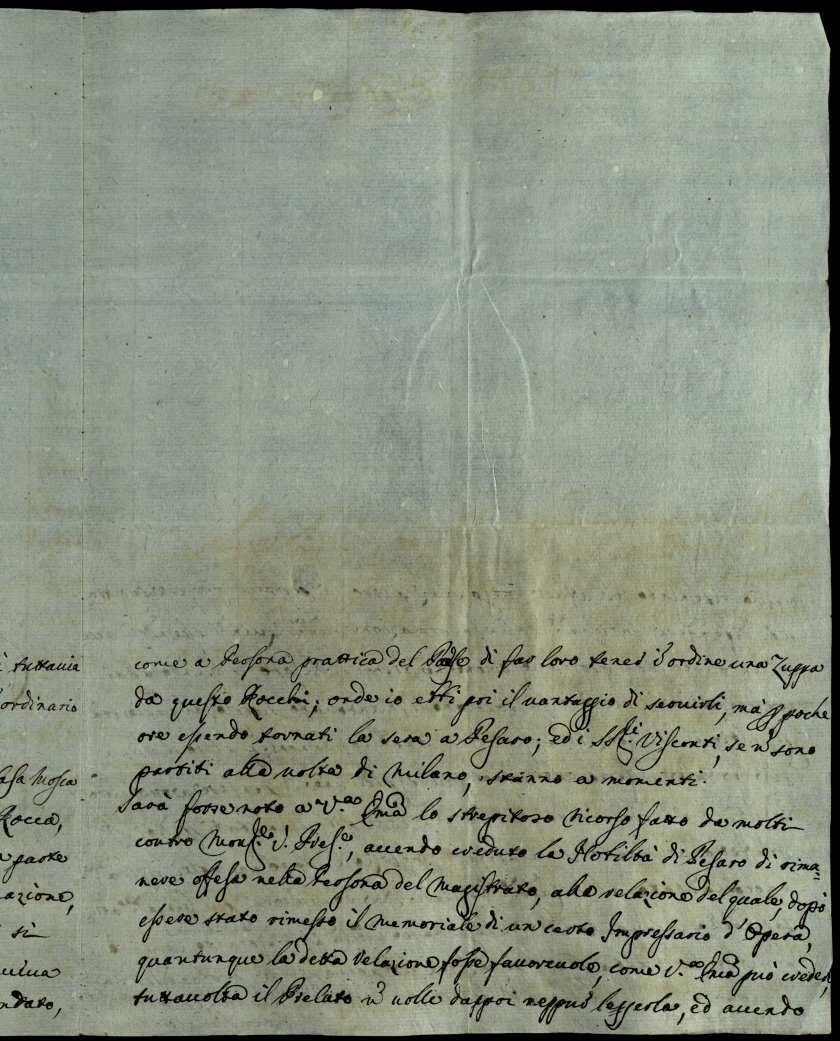 tuttavia
ordinario
Casa Mosca
Rocca,
parte
azione,
si
ndato,
come a Persona prattica del Paese di far loro tener in ordine una Zuppa
da questo Rocchi; onde io ebbi poi il vantaggio di servirli, mà p poche
ore essendo tornati la sera a Pesaro; ed i SS.ri Visconti, se ñ sono
partiti alla volta di Milano, stanno a momenti.
Sarà forse noto a V.ra Em̃a lo strepitoso ricorso fatto da molti
contro Mons.re V. Pres.e, avendo creduto la Nobiltà di Pesaro di rima=
nere offesa nella Persona del Magistrato, alla relazione del quale, dopò
essere stato rimesso il Memoriale di un certo Impressario d'Opera,
quantunque la detta relazione fosse favorevole, come V.ra Em̃a può creder,
tuttavolta il Prelato ñ volle dappoi neppur leggerla, ed avendo